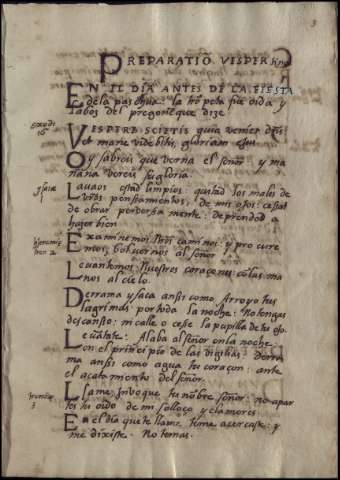 3
PREPARATIŌ VESPER
EN EL DIA ANTES DE LA FIESTA
de la paschua: la trōpeta fue oida y
labos del pregon que dize
exodi
16
VESPERE SCIETIS quia veniet dn̄s
et mane videbitis gloriam
Oy sabreis que verna el señor: y ma
ñana vereis su gloria
Lavaos estad limpios: quitad los males de
vr̄os pensamientos, de mis ojos: cesad
de obrar perversamente: deprended a
hazer bien
Examinemos nr̄os caminos: y procure
mos, bolvernos al señor
Levantemos Nuestros coraçones cō las ma
nos al cielo.
Derrama y saca ansi como Arroyo tus
lagrimas por toda la noche: No tengas
descanso: ni calle o cese la pupilla de tu ojo.
Levātate: Alaba al señor en la noche
en el principio de las vigilias: Derra
ma ansi como agua tu coraçon: ante
el acatamiento del señor.
3
Llame invoque tu nōbre señor: no apar
tes tu oido de mi solloço y clamores
En el dia que te llame, te me acercaste: y
me dixiste. No temas.